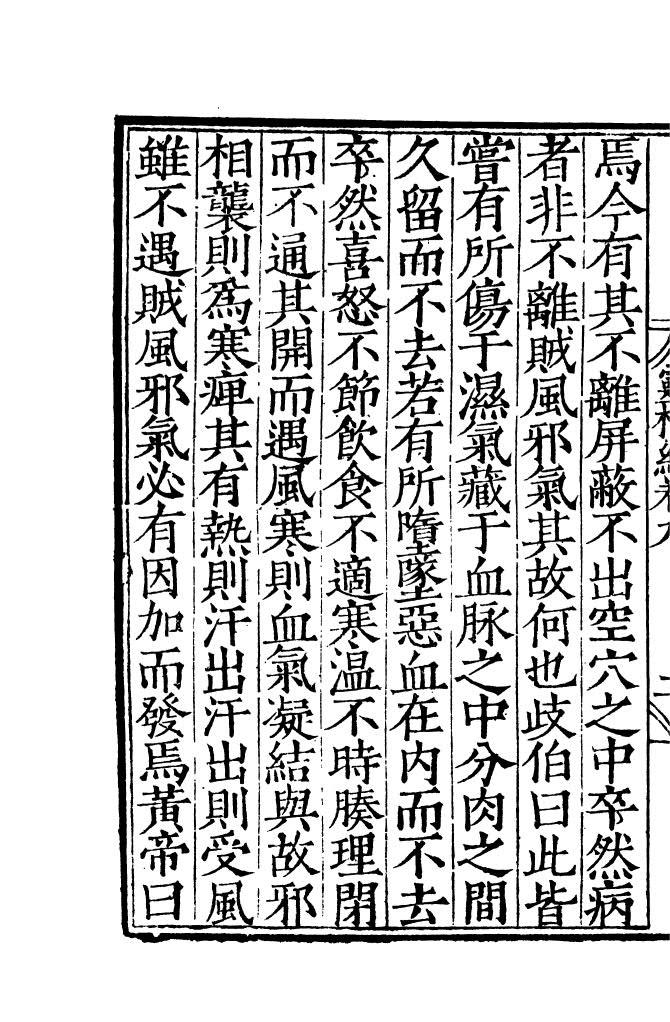 焉今有其不離屏蔽不出空穴之中卒然病
者非不離賊風邪氣其故何也歧伯曰此皆
嘗有所傷于濕氣藏于血脉之中分肉之間
久留而不去若有所墮墜惡血在内而不去
卒然喜怒不節飲食不適寒温不時腠理閉
而不通其開而遇風寒則血氣凝結與故邪
相襲則爲寒痺其有熱則汗出汗出則受風
雖不遇賊風邪氣必有因加而發焉黃帝曰